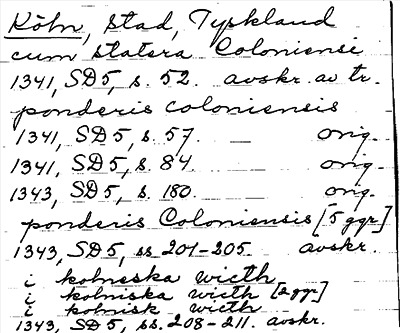 Köln, stad, Tyskland
cum statera Coloniensi
1341, SD5, s. 52. avskr. av tr.
ponderis coloniensis
1341, SD5, s. 57. — orig.
1341, SD5, s. 84. — orig.
1343, SD5, s. 180. orig.
ponderis Coloniensis [5 ggr]
1343, SD5, ss. 201-205. avskr.
i kolneska wicth
i kolniska wicth [2 ggr]
i kolnisk wicth
1343, SD5, ss. 208-211. avskr.